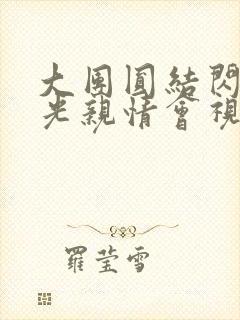 大團圓結閃
光親情會視
羅瑩雪